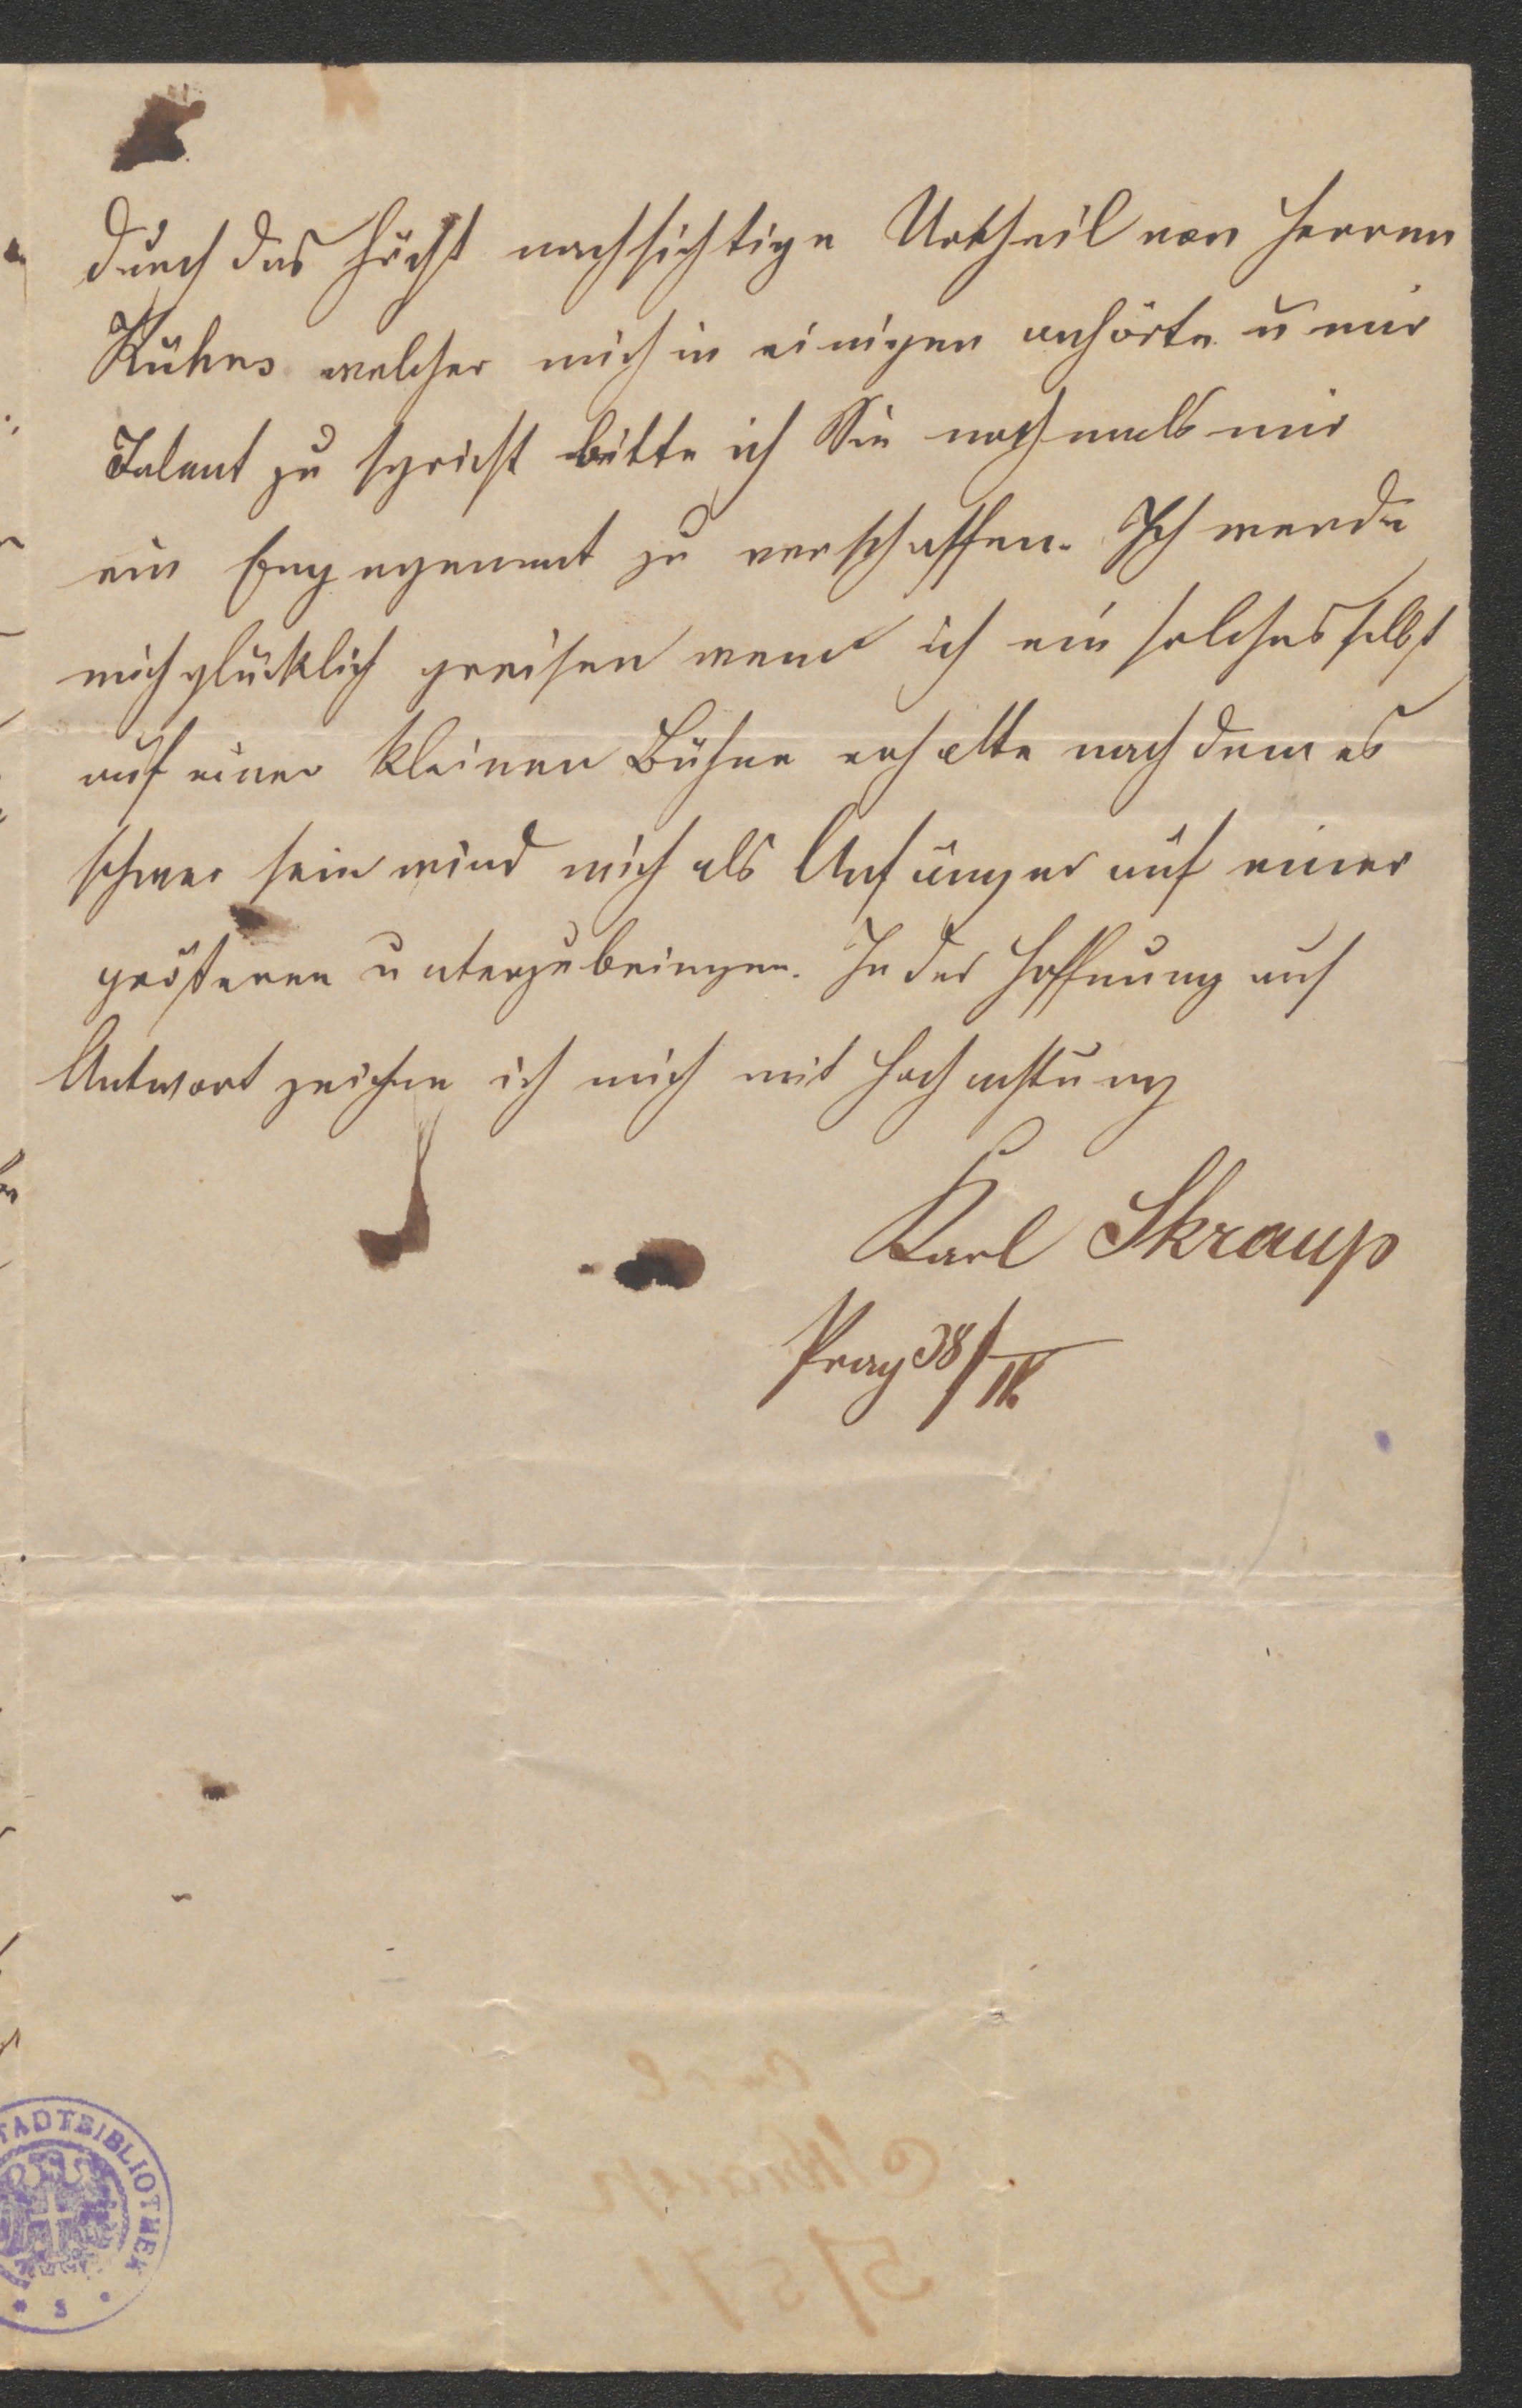 durch das höchst nachsichtige Urtheil von Herren
Kühns welcher mich in einigen anhörte u mir
Talent zu spricht bitte ich Sie nochmals mir
ein Engagement zu verschaffen. Ich werde
mich glücklich preisen wenn ich ein solches selbst
auf einer kleinen Bühne erhalte nach dem es
schwer sein wird mich als Anfänger auf einer
größeren unterzubringen. In der Hoffnung auf
Antwort zeichne ich mich mit Hochachtung
Karl Skraup
Prag
STADTBIBLIOTHEK